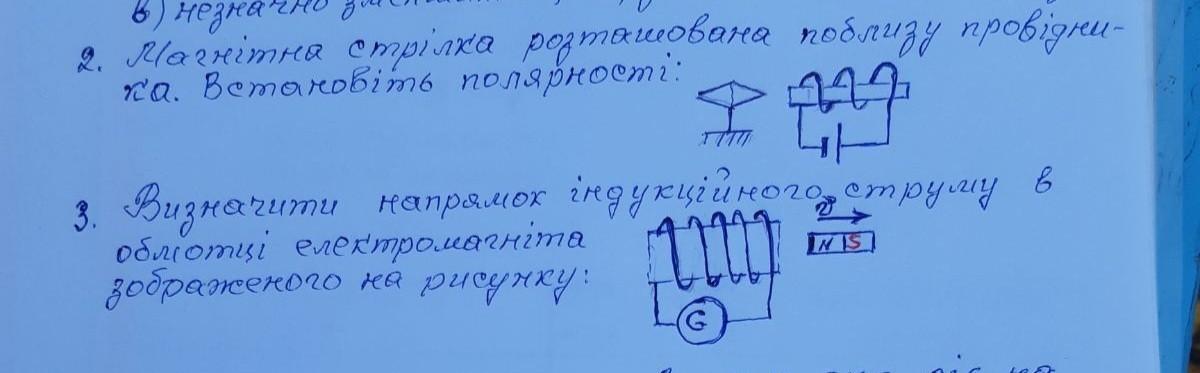 в) незначно
2. Магнітна стрілка розташована поблизу провідни-
ка. Встановіть полярності:
3. Визначити напрямок індукційного струму в
обмотці електромагніта
зображеного на рисунку:
v
N S
G